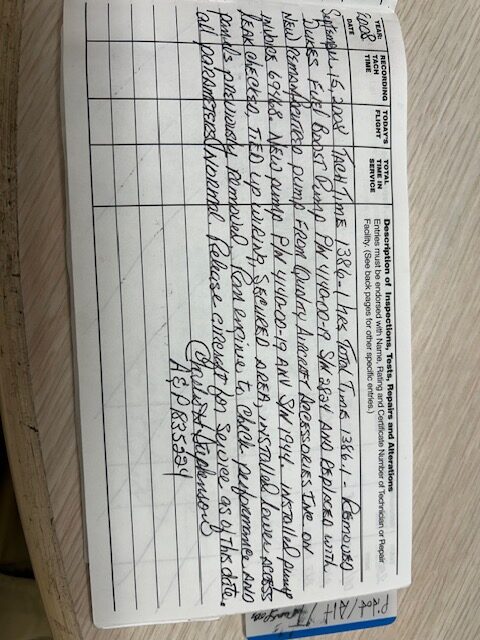 YEAR:
2008
DATE
RECORDING
TACH
TIME
TODAY'S
FLIGHT
TOTAL
TIME IN
SERVICE
Description of Inspections, Tests, Repairs and Alterations
Entries must be endorsed with Name, Rating and Certificate Number of Technician or Repair
Facility. (See back pages for other specific entries.)
September 15, 2008 Tach Time 1386.1 hrs Total Time 1386.1 - Removed
Dukes Fuel Boost Pump P/N 4140-00-19 S/N 2824 AND Replaced with
New Remanufactured pump From Quality Aircraft Accessories Inc on
69468. New pump P/N 4140-00-19 S/N 1944. Installed pump
Leak checked, Tied up wiring, secured area, installed lower access
panels previously removed. Ran engine to check performance AND
all parameters Normal Release aircraft for Service as of this date.
A&P 835224